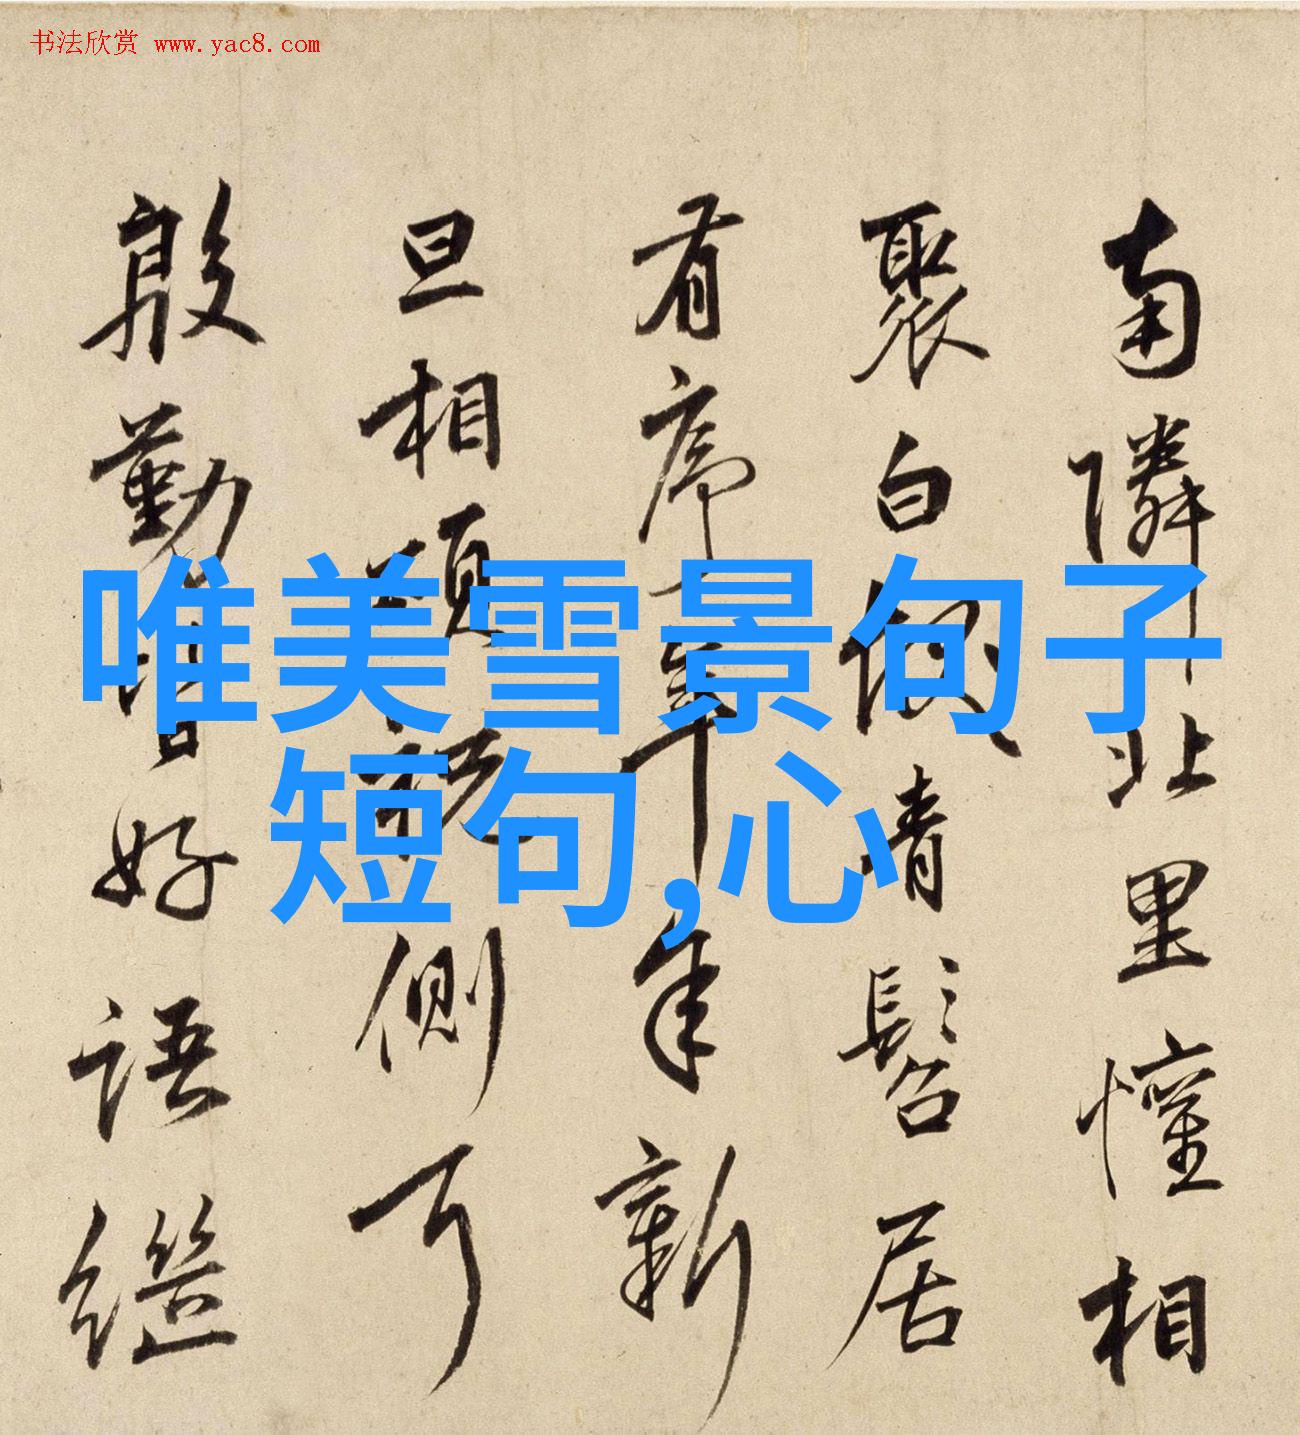 书法欣赏 www.yac8.com
唯美雪景句子
短句,心
南隣北里懽相
聚白傾青髫居
有序年年新
旦相頌祝側耳
殷勤皆好語繼